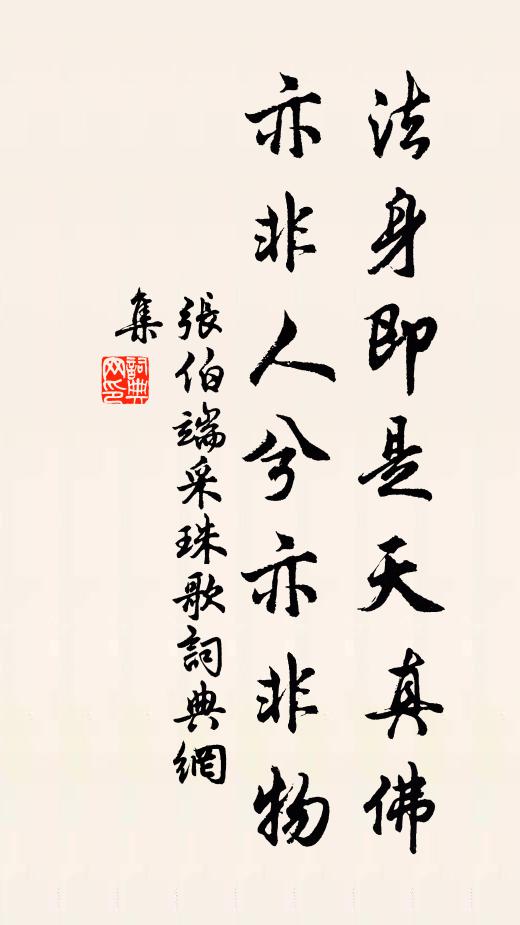 法身即是天真佛
亦非人兮亦非物
張伯端采珠歌詞典網
集
詞典网印